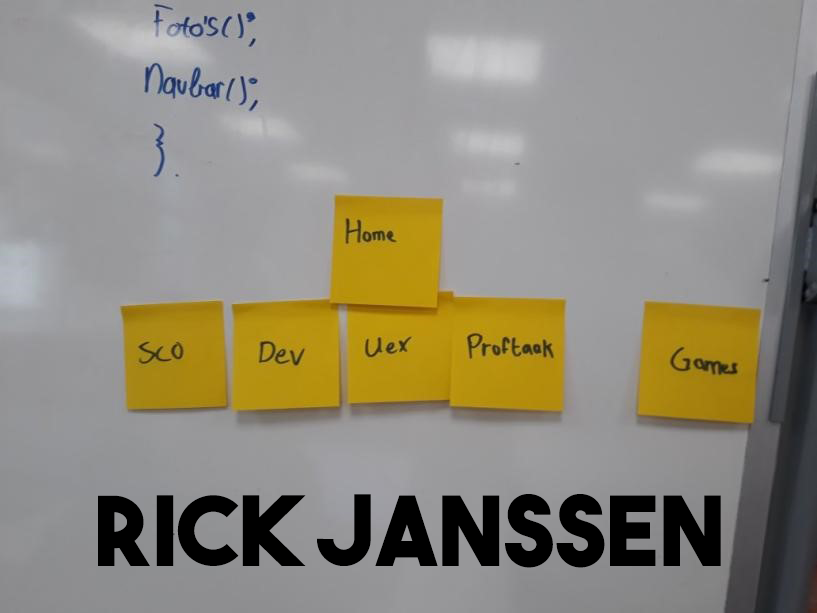 Foto's();
Navbar();
}
Home
SCO
Dev
Uex
Proftaak
Games
RICK JANSSEN